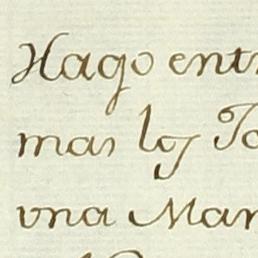 Hago entr
mas los To
vna Mar